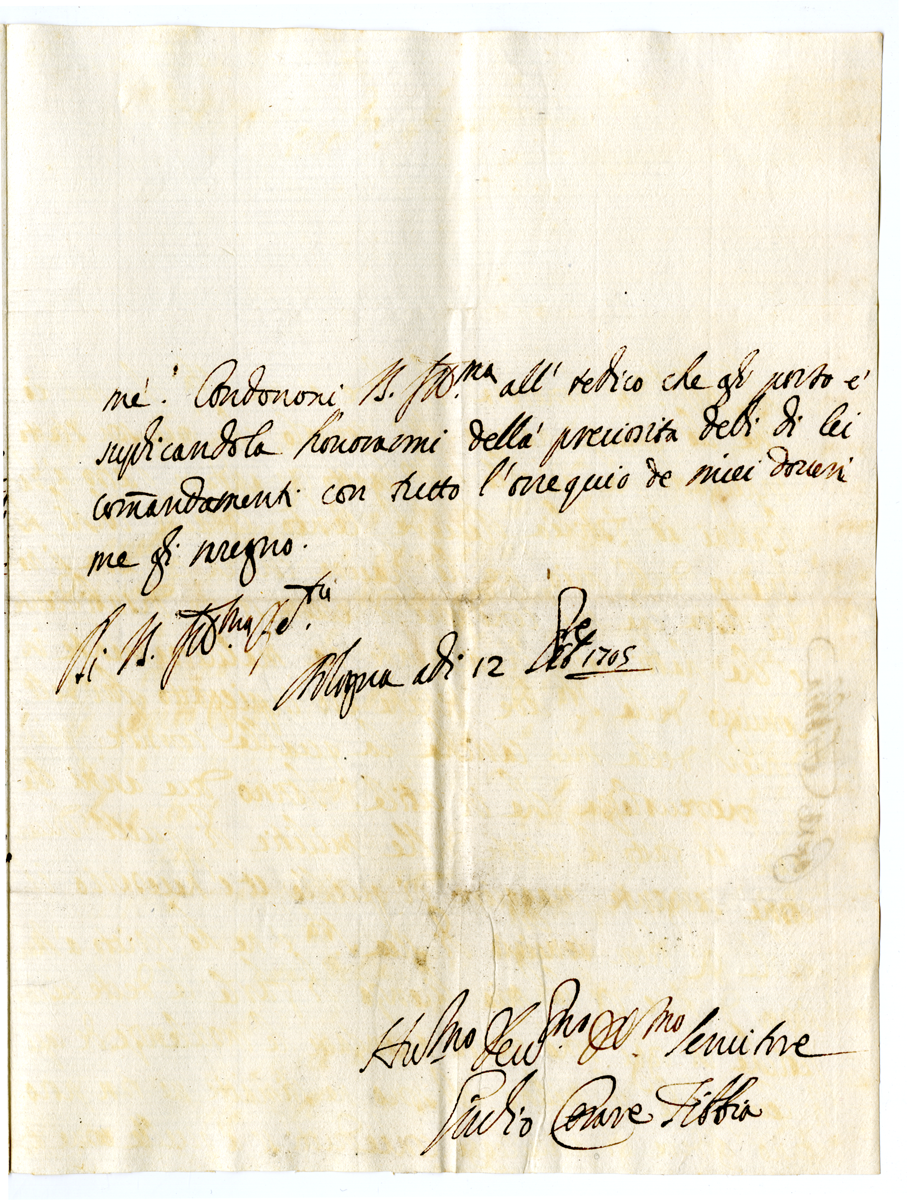 mé. Condononi V. Ill.ma all' tedico che gli porto e'
suplicandola honorarmi della' preciosità delli di lei
com̄andamenti con tutto l'ossequio de miei doueri
me gli rasegno.
Di V. Ill.ma
Bologna adi 12 1705
Hu.mo Deu.mo Obl.mo Seruitore
Giulio Cesare Fibbia